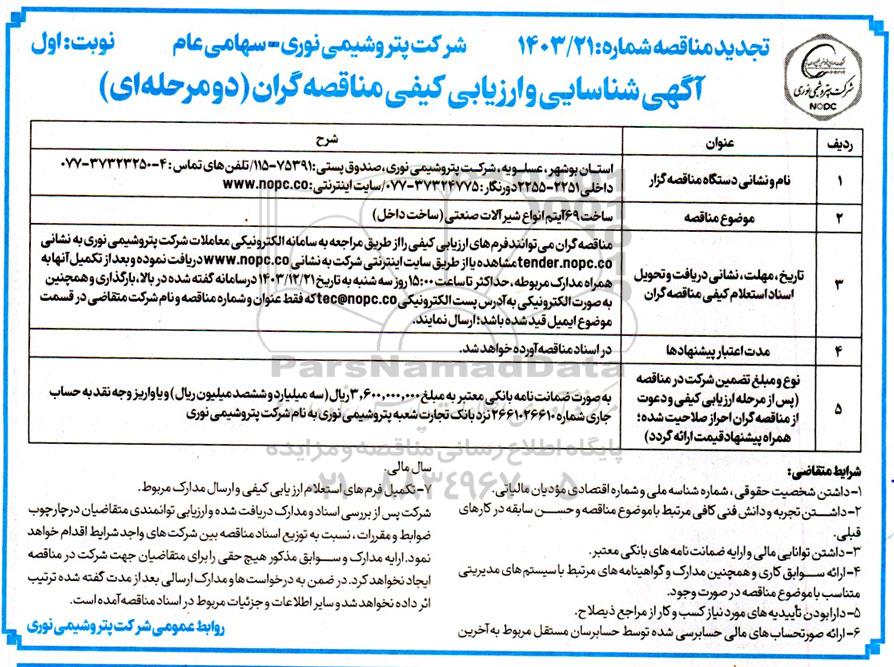 تجدید مناقصه شماره: ۱۴۰۳/۲۱
شرکت پتروشیمی نوری - سهامی عام
نوبت: اول
آگهی شناسایی و ارزیابی کیفی مناقصه گران (دو مرحله‌ای)
شرکت پتروشیمی نوری
NODC
ردیف
عنوان
شرح
۱
نام و نشانی دستگاه مناقصه گزار
استان بوشهر، عسلویه، شرکت پتروشیمی نوری، صندوق پستی: ۷۵۳۹۱-۱۱۵/ تلفن‌های تماس: ۴-۳۷۳۲۳۲۵۰-۰۷۷
داخلی ۲۲۵۱-۲۲۵۵ دورنگار: ۳۷۳۲۴۷۷۵-۰۷۷/ سایت اینترنتی: www.nopc.co
۲
موضوع مناقصه
ساخت ۶۹ آیتم انواع شیرآلات صنعتی (ساخت داخل)
۳
تاریخ، مهلت، نشانی دریافت و تحویل
اسناد استعلام کیفی مناقصه گران
مناقصه گران می‌توانند فرم‌های ارزیابی کیفی را از طریق مراجعه به سامانه الکترونیکی معاملات شرکت پتروشیمی نوری به نشانی
tender.nopc.co مشاهده یا از طریق سایت اینترنتی شرکت به نشانی www.nopc.co دریافت نموده و بعد از تکمیل آنها به
همراه مدارک مربوطه، حداکثر تا ساعت ۱۵:۰۰ روز سه شنبه به تاریخ ۱۴۰۳/۱۲/۲۱ در سامانه گفته شده در بالا، بارگذاری و همچنین
به صورت الکترونیکی به آدرس پست الکترونیکی tec@nopc.co که فقط عنوان و شماره مناقصه و نام شرکت متقاضی در قسمت
موضوع ایمیل قید شده باشد؛ ارسال نمایند.
۴
مدت اعتبار پیشنهادها
در اسناد مناقصه آورده خواهد شد.
۵
نوع و مبلغ تضمین شرکت در مناقصه
(پس از مرحله ارزیابی کیفی و دعوت
از مناقصه گران احراز صلاحیت شده؛
همراه پیشنهاد قیمت ارائه گردد)
به صورت ضمانت نامه بانکی معتبر به مبلغ ۳,۶۰۰,۰۰۰,۰۰۰ ریال (سه میلیارد و ششصد میلیون ریال) و یا واریز وجه نقد به حساب
جاری شماره ۲۶۶۱۰۲۶۶۱۰ نزد بانک تجارت شعبه پتروشیمی نوری به نام شرکت پتروشیمی نوری
ParsNamadData
پایگاه اطلاع رسانی مناقصه و مزایده
۰۲۱-۸۸۳۴۹۶۷۰-۵
شرایط متقاضی:
۱- داشتن شخصیت حقوقی، شماره شناسه ملی و شماره اقتصادی مؤدیان مالیاتی.
۲- داشتن تجربه و دانش فنی کافی مرتبط با موضوع مناقصه و حسن سابقه در کارهای
قبلی.
۳- داشتن توانایی مالی و ارایه ضمانت نامه های بانکی معتبر.
۴- ارائه سوابق کاری و همچنین مدارک و گواهینامه های مرتبط با سیستم های مدیریتی
متناسب با موضوع مناقصه در صورت وجود.
۵- دارا بودن تأییدیه های مورد نیاز کسب و کار از مراجع ذیصلاح.
۶- ارائه صورتحساب های مالی حسابرسی شده توسط حسابرسان مستقل مربوط به آخرین
سال مالی.
۷- تکمیل فرم های استعلام ارزیابی کیفی و ارسال مدارک مربوط.
شرکت پس از بررسی اسناد و مدارک دریافت شده و ارزیابی توانمندی متقاضیان در چارچوب
ضوابط و مقررات، نسبت به توزیع اسناد مناقصه بین شرکت های واجد شرایط اقدام خواهد
نمود. ارایه مدارک و سوابق مذکور هیچ حقی را برای متقاضیان جهت شرکت در مناقصه
ایجاد نخواهد کرد. در ضمن به درخواست ها و مدارک ارسالی بعد از مدت گفته شده ترتیب
اثر داده نخواهد شد و سایر اطلاعات و جزئیات مربوط در اسناد مناقصه آمده است.
روابط عمومی شرکت پتروشیمی نوری